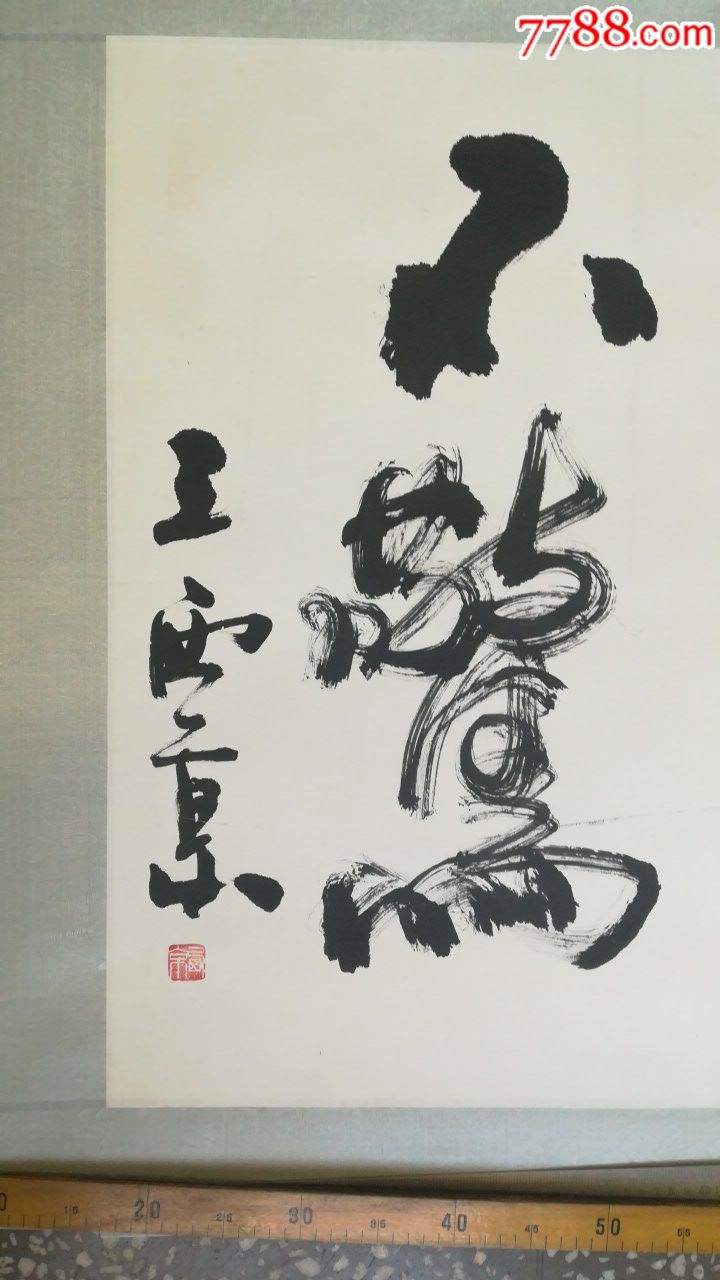 7788.com
不驚
王西京
15 20 25 30 35 40 45 50 55